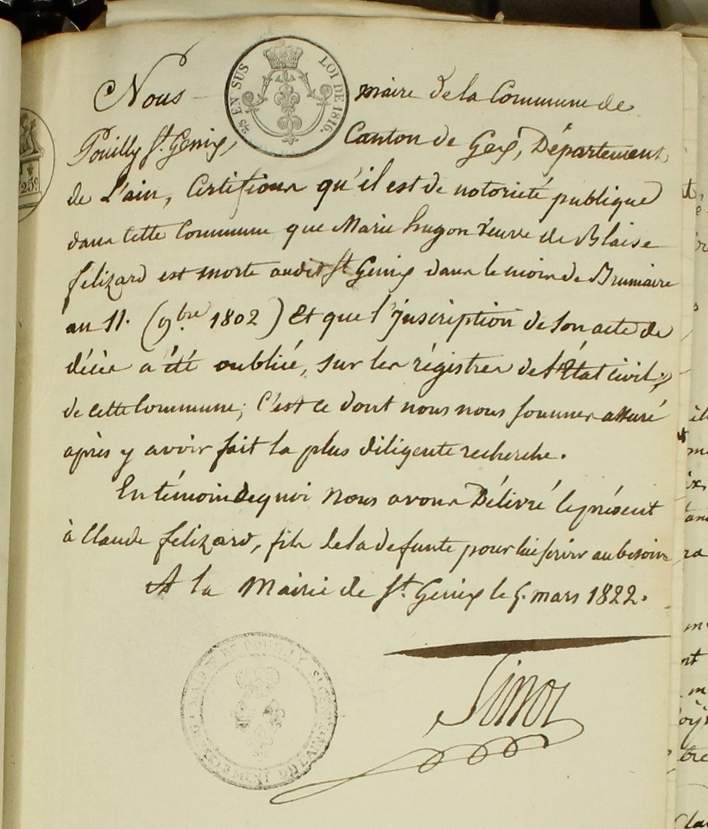 25 EN SUS LOI DE 1816.
Nous maire de la Commune de
Pouilly St. Genix, Canton de Gex, Département
de L'ain, Certifions qu'il est de notorieté publique
dans Cette Commune que Marie hugon veuve de Blaise
felizard est morte audit St Genix dans le mois de Brumaire
an 11. (9bre 1802) Et que l'Inscription de son acte de
décès a été oublié, sur les régistres de l'État civil,
de cette Commune; C'est ce dont nous nous sommes assuré
après y avoir fait la plus diligente recherche.
En témoin de quoi Nous avons Délivré le présent
à Claude felizard, fils de la defunte pour lui servir au besoin
A la Mairie de St. Genix le 5. mars 1822.